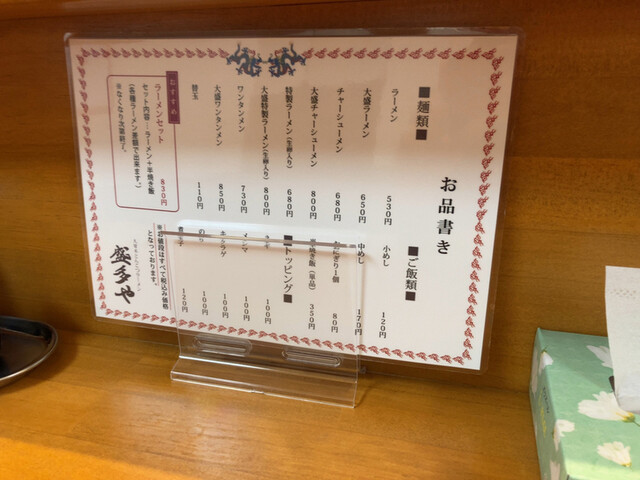 お品書き
■麺類■
ラーメン 530円
大盛ラーメン 650円
チャーシューメン 680円
大盛チャーシューメン 800円
特製ラーメン(生卵入り) 680円
大盛特製ラーメン(生卵入り) 800円
ワンタンメン 730円
大盛ワンタンメン 850円
替玉 110円
■ご飯類■
小めし 120円
中めし 170円
おにぎり1個 80円
半焼き飯(単品) 350円
■トッピング■
100円
メンマ 100円
キクラゲ 100円
のり 100円
煮玉子 120円
おすすめ
ラーメンセット 830円
セット内容…ラーメン+半焼き飯
(各種ラーメン差額で出来ます。)
※なくなり次第終了。
※お値段はすべて税込み価格
となっております。
盛多や